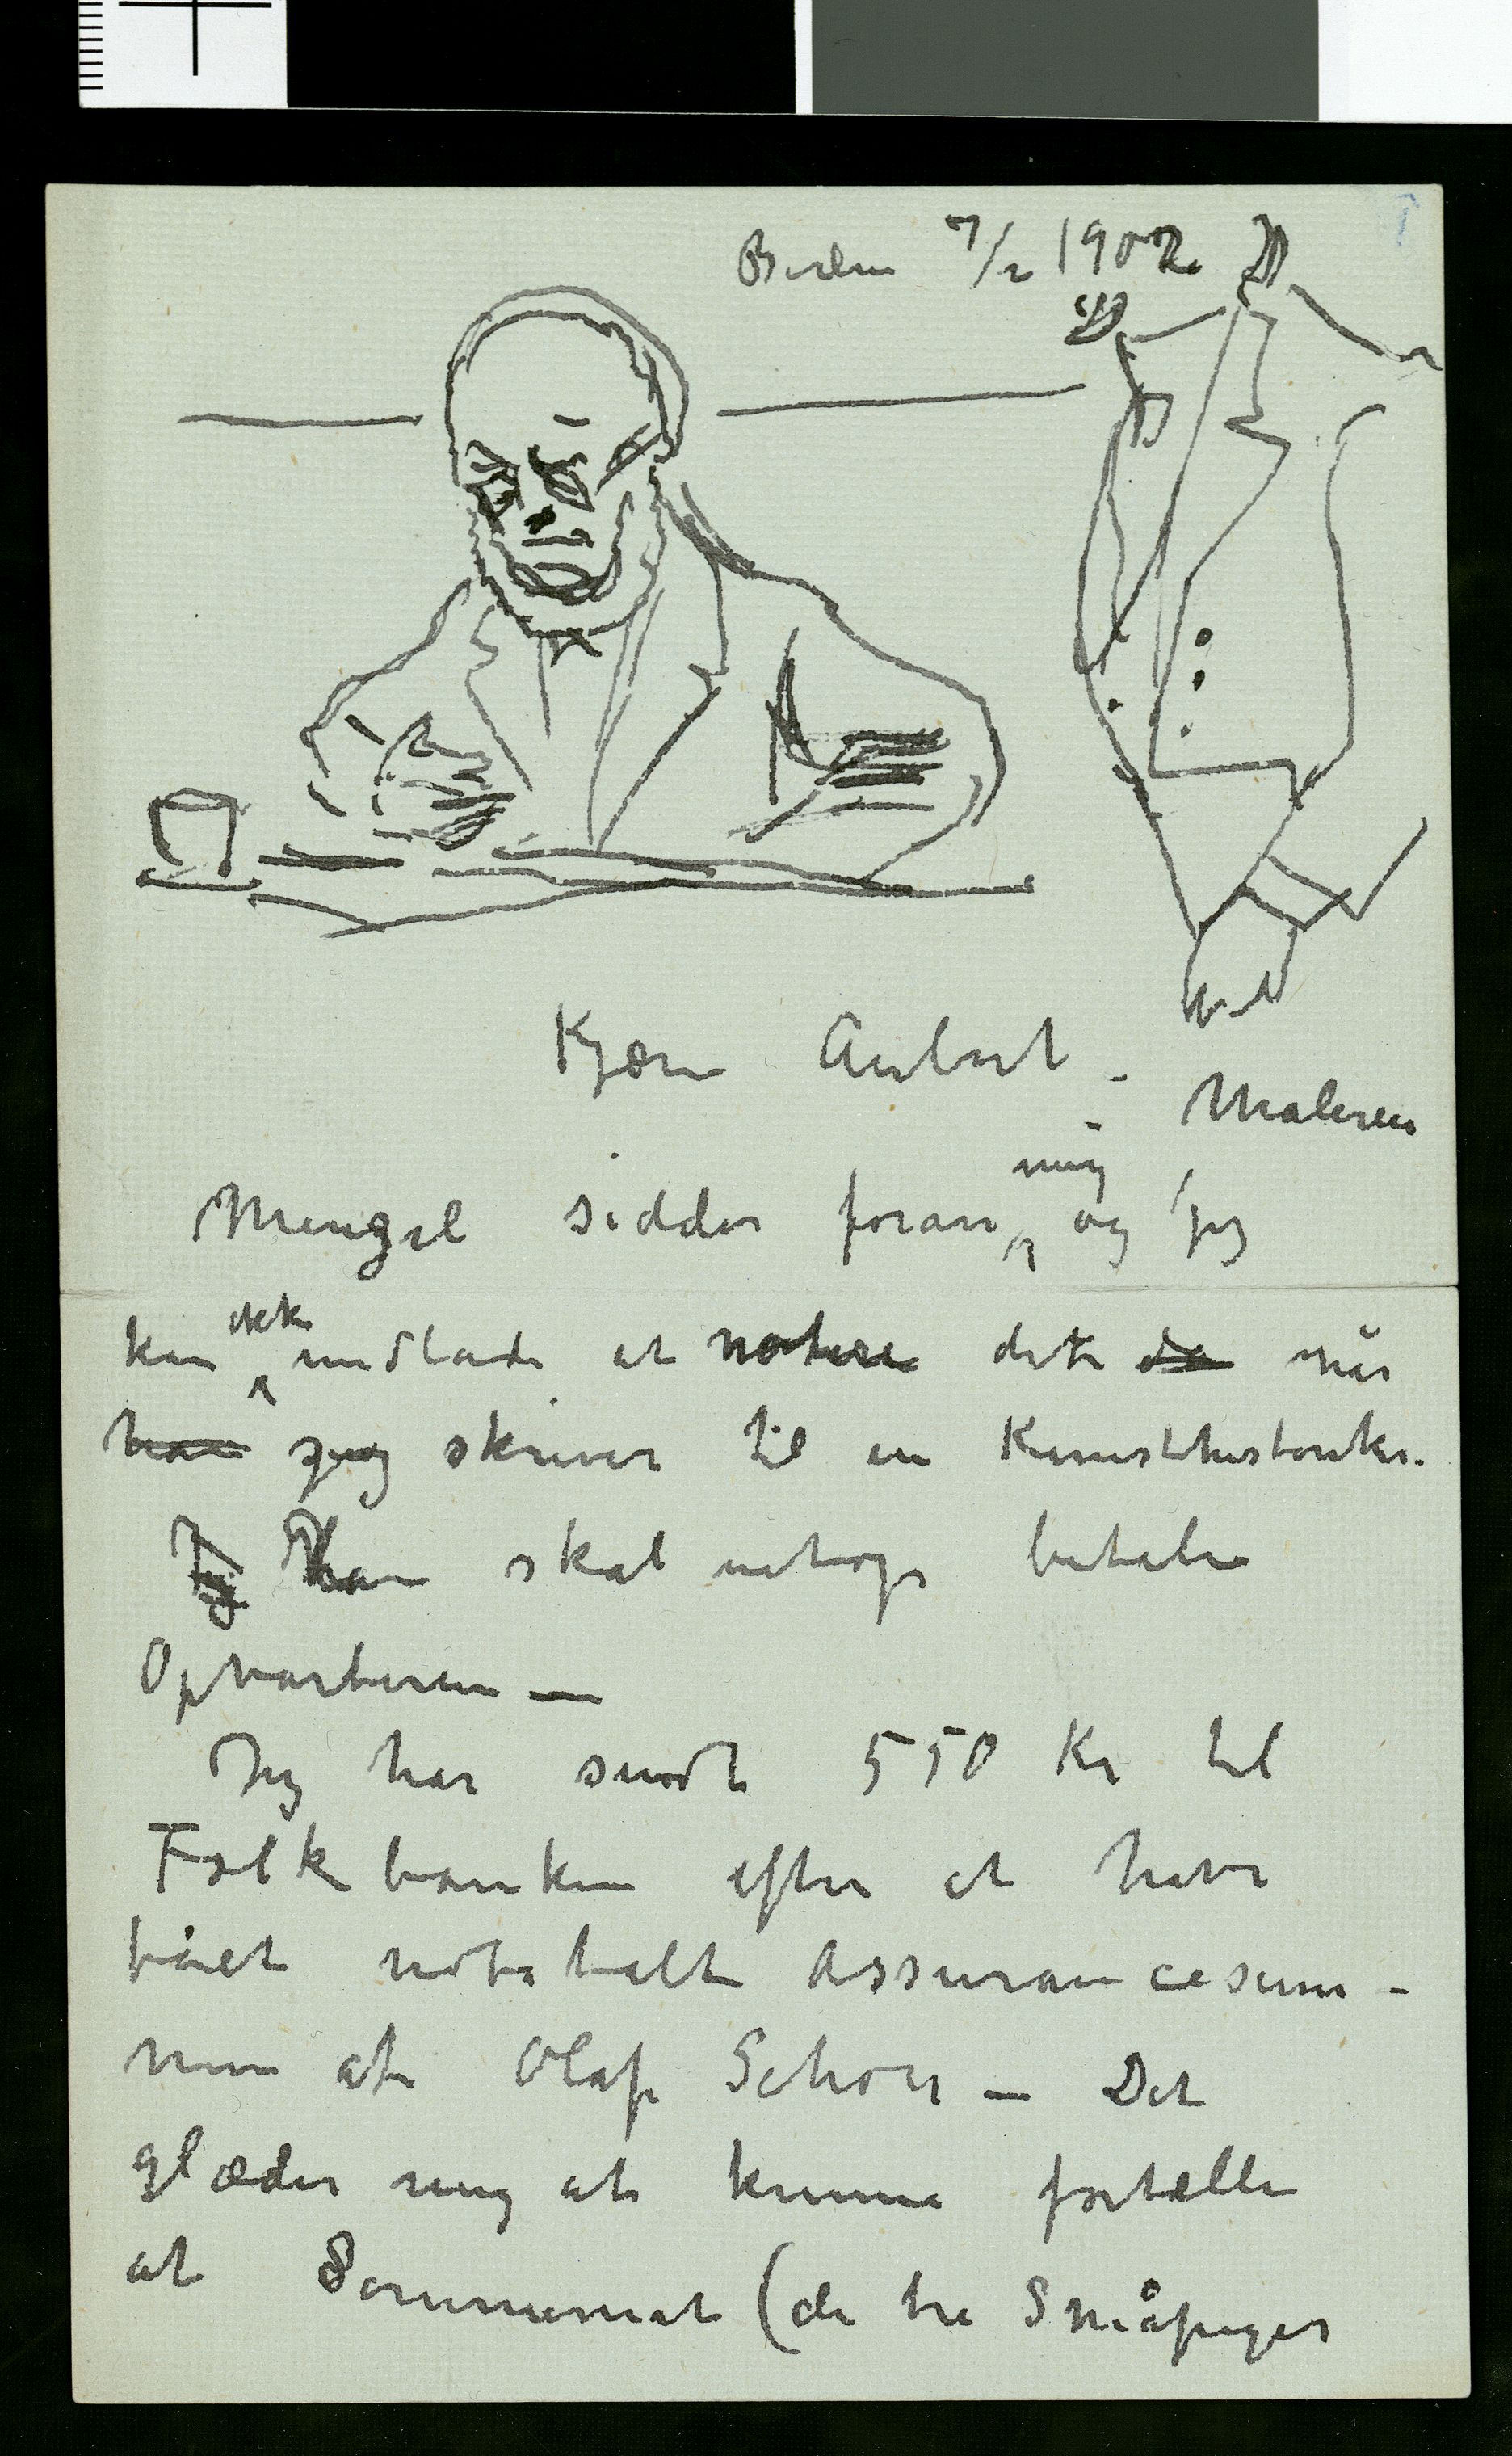 Berlin 7/2 1902
Kjære Aubert –
– Maleren
Menzel sidder foran mig og jeg
kan ikke undlade at notere dette da når
han jeg skriver til en Kunsthistoriker.
Jeg Han skal netop betale
Opvarteren —
Jeg har sendt 550 Kr til
Folkebanken efter at have
fået udbetalt Assurancesum-
men af Olaf Schou — Det
glæder mig at kunne fortælle
at Sommernat (de tre Småpiger